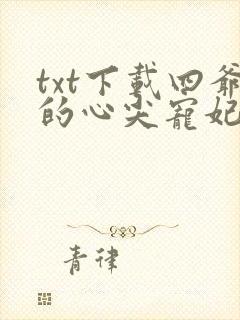 txt下載四爺
的心尖寵妃
青律